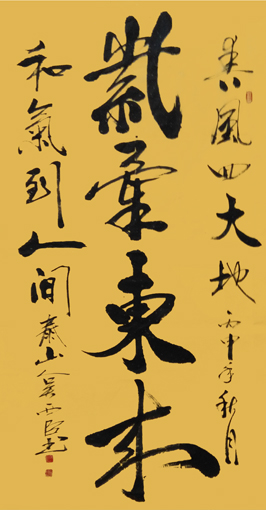 春風回大地 丙申年秋月
紫氣東來
和氣到人間 泰山人吴